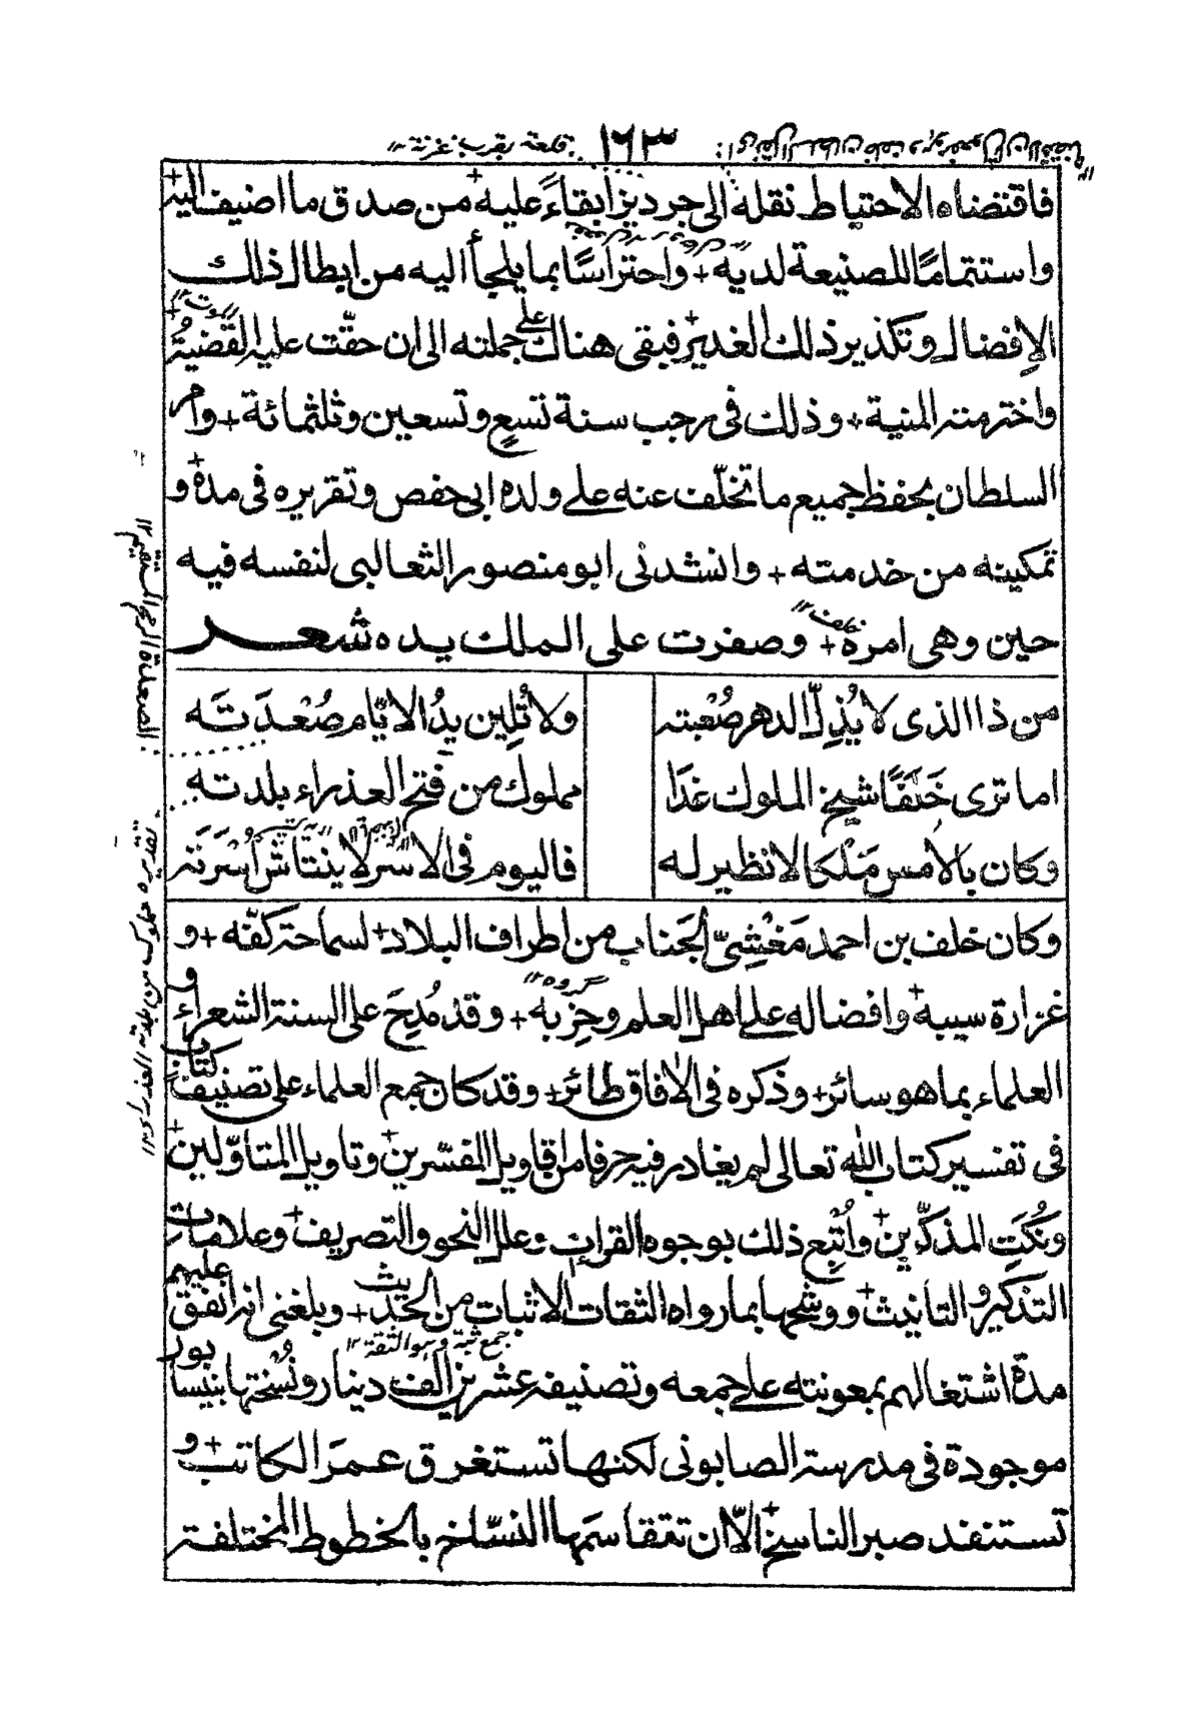 ١٦٣
قلعة بقرب غزنة ١٢
فاقتضاه الاحتياط نقله الى جرديز ابقاءً عليه + من صدق ما اضيف اليه +
واستتمامًا للصنيعة لديه + واحتراسًا بما يلجأ اليه من ابطال ذلك
الإفضال وتكذير ذلك الغدير + فبقى هناك على جملته الى ان حقّت عليه القضيّة +
واخترمته المنية + وذلك فى رجب سنة تسعٍ وتسعين وثلثمائة + وامر
السلطان بحفظ جميع ما تخلّف عنه على ولده ابى حفص وتقريره فى مدة + و
تمكينه من خدمته + وانشدنى ابو منصور الثعالبى لنفسه فيه
حين وهى امره + وصفرت على الملك يده شعر
من ذا الذى لا يُذِلّ الدهر صُعْبته
ولا تُلِين يدُ الايّام صُعْدَتَه
اما ترى خَلَفًا شيخ الملوك غدَا
مملوك من فتح العذراء بلدته
وكان بالأمس مَلْكا لا نظير له
فاليوم فى الاسر لا ينتاش أُسْرَتَه
وكان خلف بن احمد مَغْشِىّ الجَناب من اطراف البلاد + لسماحة كفّه + و
غزارة سيبه + وافضاله على اهل العلم وحِزبه + وقد مُدِحَ على السنة الشعراء و
العلماء بما هو سائر + وذكره فى الآفاق طائر + وقد كان جمع العلماء على تصنيف كتاب
فى تفسير كتاب الله تعالى لم يغادر فيه حرفا من اقاويل المفسّرين + وتاويل المتاوّلين +
ونُكَتِ المذكّرين + وأُتْبِع ذلك بوجوه القرات وعلل النحو والتصريف + وعلامات
التذكير والتانيث + ووشّحها بما رواه الثقات الاثبات من الحديث + وبلغنى انه انفق عليهم
مدّة اشتغالهم بمعونته على جمعه وتصنيفه عشرين الف دينار ونُسختها بنيسابور
موجودة فى مدرسة الصابونى لكنها تستغرق عمرَ الكاتب + و
تستنفد صبر الناسخ + الّا ان تتقاسمَها النسّاخ بالخطوط المختلفة